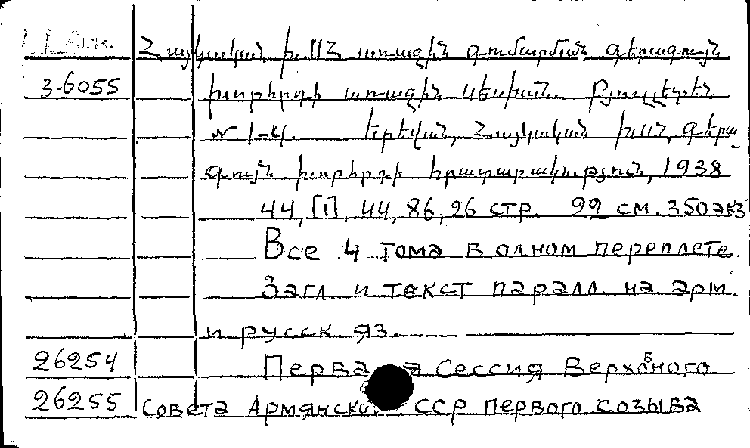 Հայկական ԽՍՍՀ առաջին գումարման գերագույն
3-6055 խորհրդի առաջին սեսիան. Բյուլլետեն
N 1-4. Երեվան, Հայկական ԽՍՍՀ, գերա
գույն խորհրդի հրատարակություն, 1938
44, [1], 44, 86, 26 стр. 22 см. 350 экз
Все 4 тома в одном переплете.
Загл и текст паралл. на арм.
и русск яз.
26254 Первая Сессия Верховного
26255 Совета Армянской ССР первого созыва